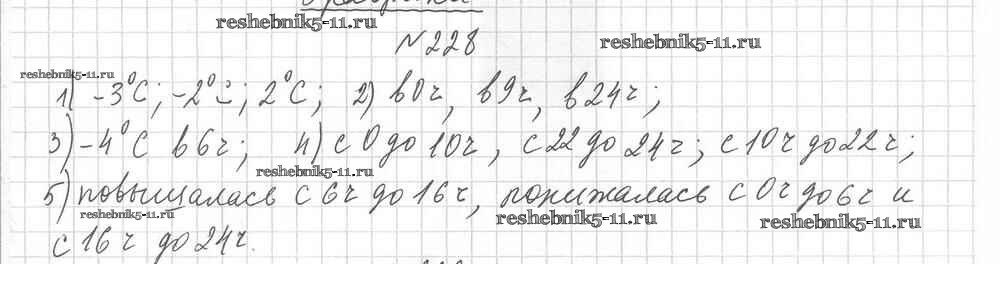 Графики
reshebnik5-11.ru
№228
reshebnik5-11.ru
reshebnik5-11.ru
1) -3°С; -2°С; 2°С; 2) в 0ч, в 9ч, в 24ч;
3) -4°С в 6ч; 4) с 0 до 10ч, с 22 до 24ч; с 10ч до 22ч;
reshebnik5-11.ru
5) повышалась с 6ч до 16ч, понижалась с 0ч до 6ч и
reshebnik5-11.ru
reshebnik5-11.ru
reshebnik5-11.ru
с 16ч до 24ч.